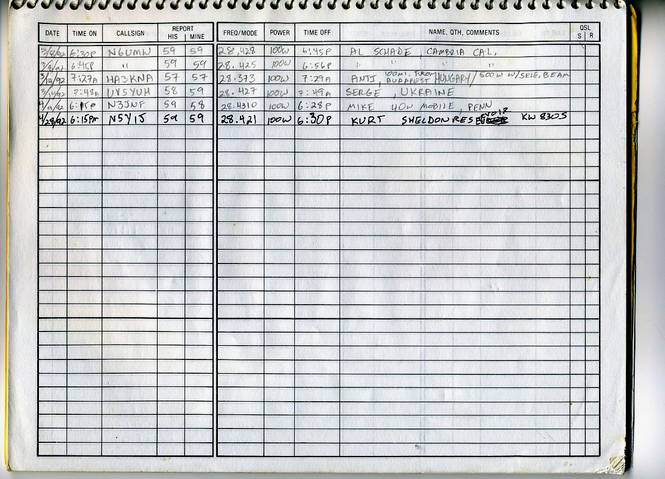 DATE TIME ON CALLSIGN REPORT HIS MINE FREQ/MODE POWER TIME OFF NAME, QTH, COMMENTS QSL S R
6:30P N6UMW 59 59 28.428 100W 6:45P AL SCHADE, CAMBRIA CAL.
6:45P " 59 59 28.425 100W 6:56P " " " "
7:27A HA3KNA 57 57 28.373 100W 7:29A ANTJ, BUDAPEST HUNGARY / 500W W/5ELE. BEAM
7:48A UV5YUH 58 59 28.427 100W 7:49A SERGE, UKRAINE
N33NF 59 58 28.4310 100W 6:28P MIKE 40W MOBILE, PENN
4/28/92 6:15PM N5YIJ 59 59 28.421 100W 6:30P KURT SHELDON RES KW 830S